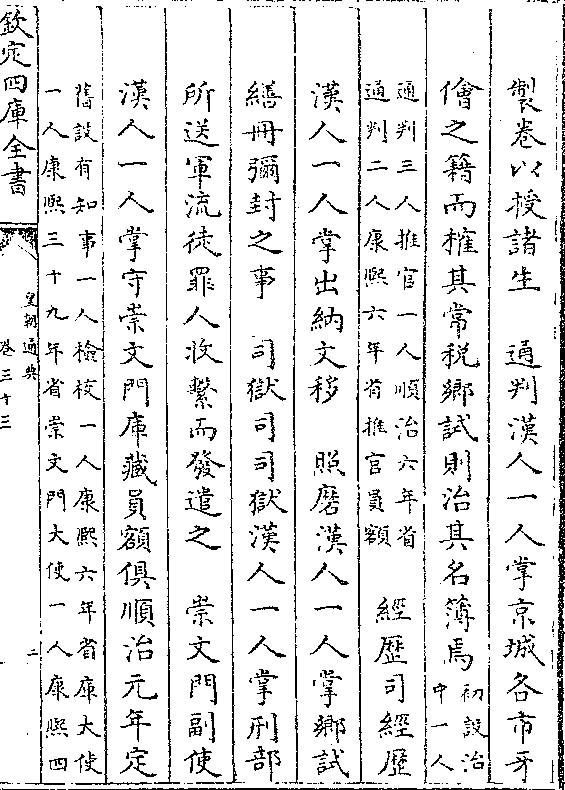 製卷以授諸生　通判漢人一人掌京城各市牙
儈之籍而榷其常税鄉試則治其名簿焉初設治
中一人
通判三人推官一人順治六年省
通判二人康熙六年省推官員額
經歴司經歴
漢人一人掌出納文移　照磨漢人一人掌鄉試
繕冊彌封之事　司獄司司獄漢人一人掌刑部
所送軍流徒罪人收繫而發遣之　崇文門副使
漢人一人掌守崇文門庫藏員額俱順治元年定
舊設有知事一人檢校一人康熙六年省庫大使
一人康熙三十九年省崇文門大使一人康熙四
欽定四庫全書
皇朝通典
卷三十三
二